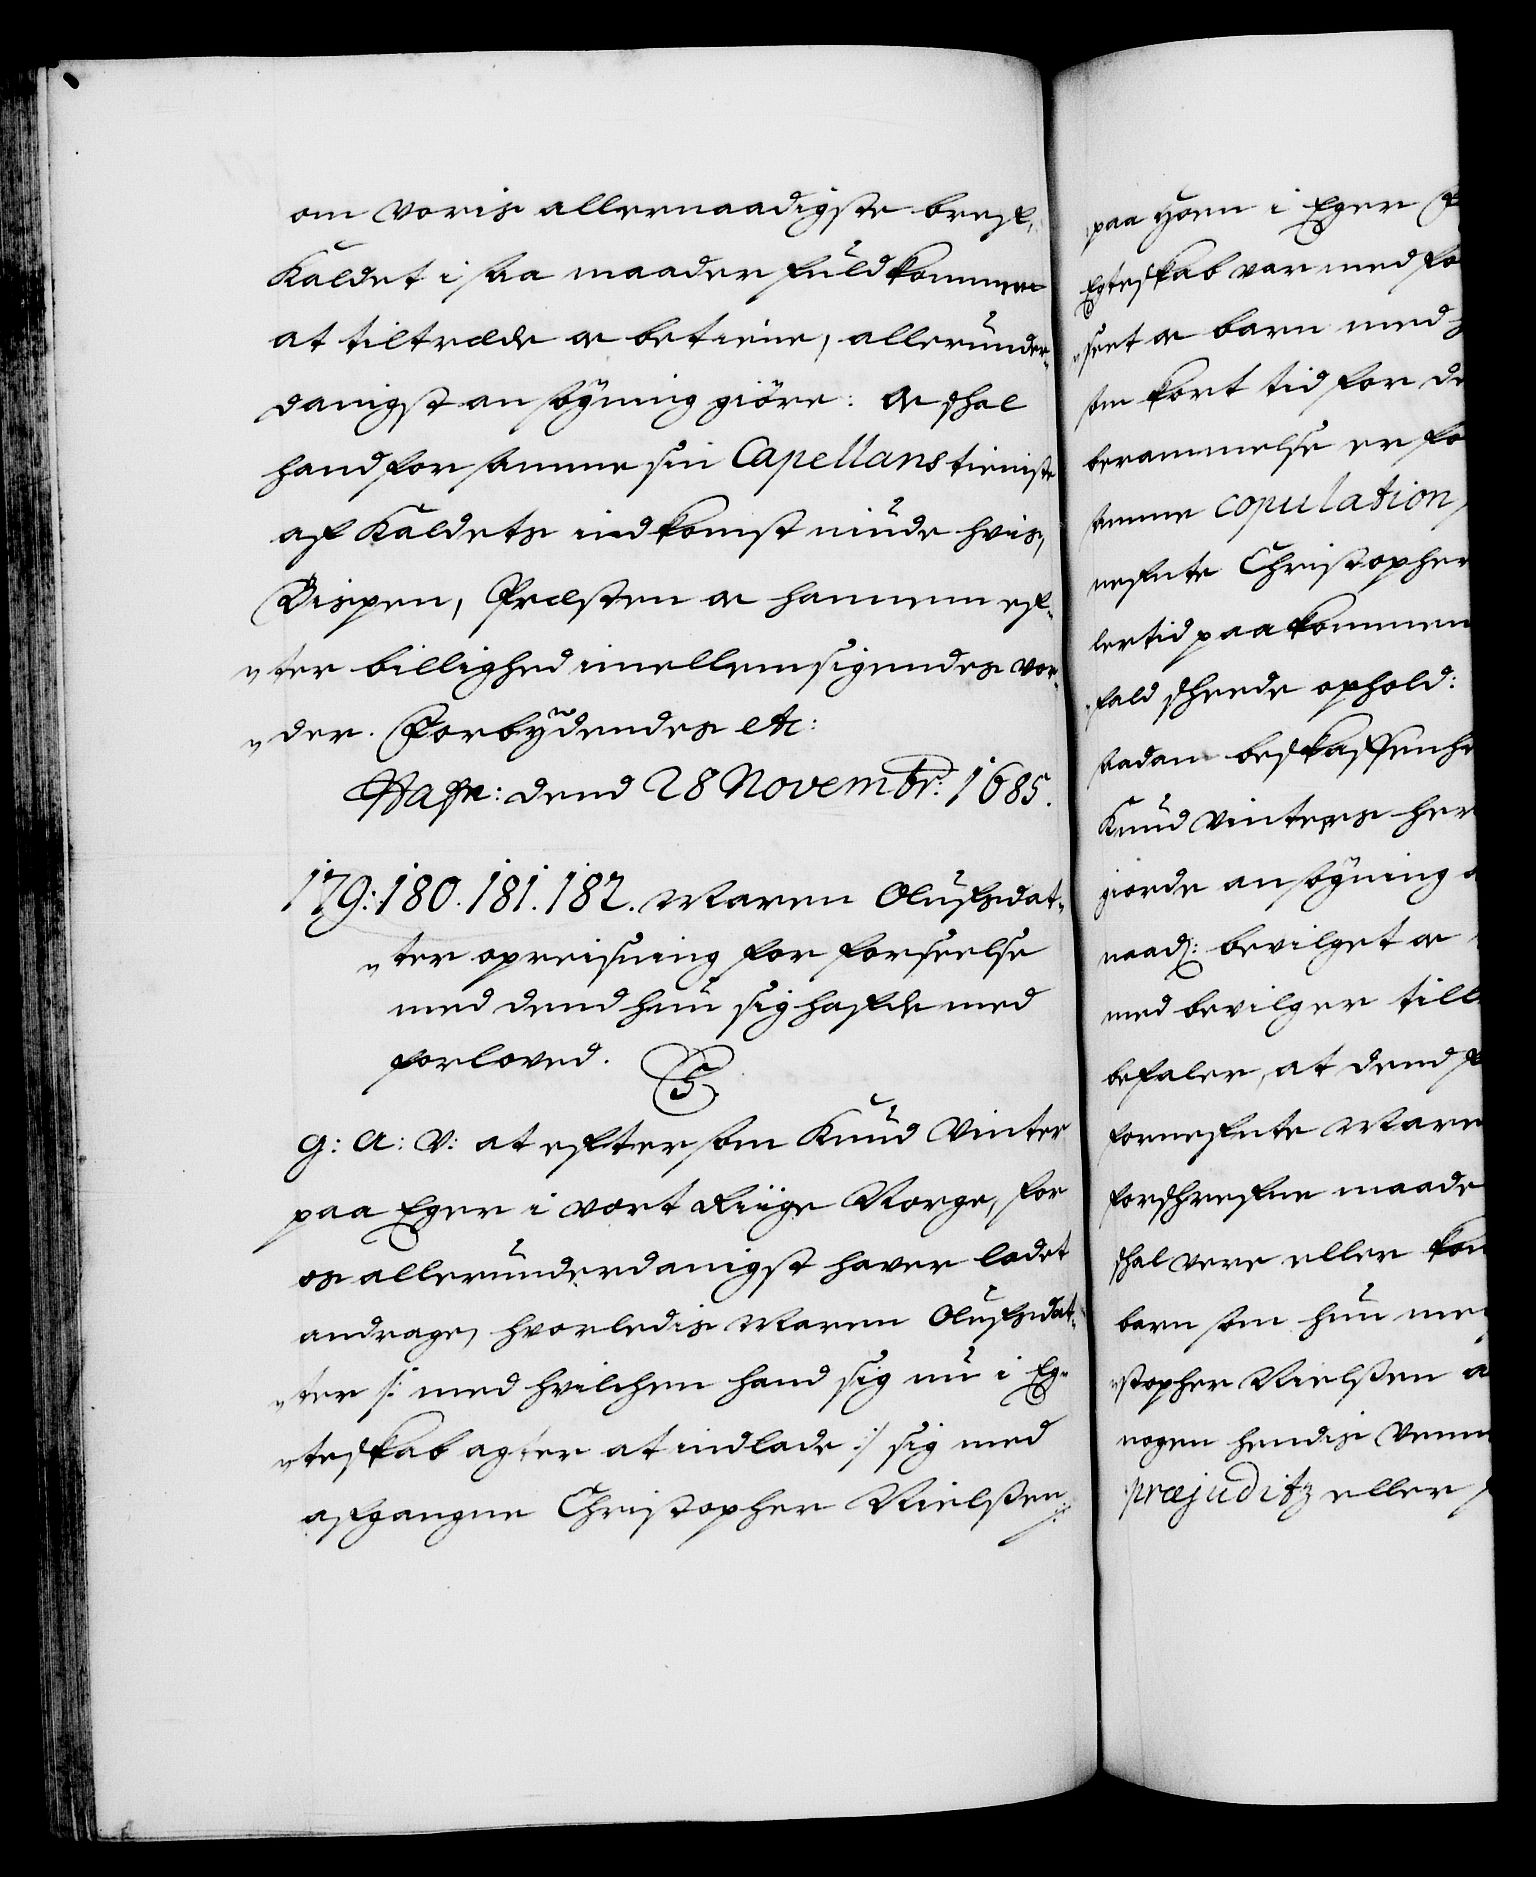 om voris allernaadigste bref,
Kaldet i saa maader fuldkommen
at tiltræde og betiene, allerunder„
danigst ansøgning giöre: og skal
hand for samme sin Capellans tieniste
af Kaldets indkomst niude hvis,
Bispen, Præsten og hannem ef„
„ter billighed imellem sigendes vor„
„der. Forbÿdendes etc:
Hafn: dend 28 Novembr: 1685.
179: 180. 181. 182. Maren Olufsdat„
„ter opreisning for forseelse
med dend hun sig hafde med
forloved.
C5.
G: A: V: at eftersom Knud Vinter
paa Eger i vort Riige Norge, for
os allerunderdanigst haver ladet
andrage, hvorledis Maren Olufsdat„
„ter /: med hvilchen hand sig nu i Eg„
„teskab agter at indlade :/ sig med
afgangne Christopher Nielssen
paa Hoen i Eger
Egteskab var med fo
„seet og barn med
som kort tid for de
berammelse er fo
samme copulation,
nefnte Christopher
lertid paakommen
fald skeede ophold:
saadan beskaffenhe
Knud Vinters her
giorde ansøgning
naad: bevilget og
med bevilger till
befaler, at dend
fornefnte Maren
forskrefne maade
skal vere eller kom
barn som hun me
„stopher Nielssen a
nogen hendis Venn
præjuditz eller